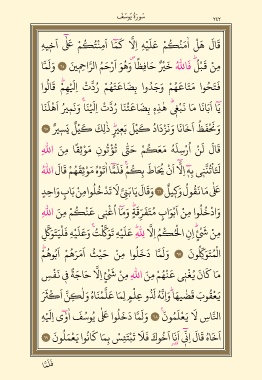 سُورَةُ يُوسُفَ ٢٤٢
قَالَ هَلْ اٰمَنُكُمْ عَلَيْهِ اِلَّا كَمَٓا اَمِنْتُكُمْ عَلٰٓى اَخ۪يهِ
مِنْ قَبْلُۜ فَاللّٰهُ خَيْرٌ حَافِظًاۖ وَهُوَ اَرْحَمُ الرَّاحِم۪ينَ ﴿٦٤﴾ وَلَمَّا
فَتَحُوا مَتَاعَهُمْ وَجَدُوا بِضَاعَتَهُمْ رُدَّتْ اِلَيْهِمْۜ قَالُوا
يَٓا اَبَانَا مَا نَبْغ۪يۜ هٰذِه۪ بِضَاعَتُنَا رُدَّتْ اِلَيْنَاۚ وَنَم۪يرُ اَهْلَنَا
وَنَحْفَظُ اَخَانَا وَنَزْدَادُ كَيْلَ بَع۪يرٍۜ ذٰلِكَ كَيْلٌ يَس۪يرٌ ﴿٦٥﴾
قَالَ لَنْ اُرْسِلَهُ مَعَكُمْ حَتّٰى تُؤْتُونِ مَوْثِقًا مِنَ اللّٰهِ
لَتَأْتُنَّن۪ي بِه۪ٓ اِلَّٓا اَنْ يُحَاطَ بِكُمْۚ فَلَمَّٓا اٰتَوْهُ مَوْثِقَهُمْ قَالَ اللّٰهُ
عَلٰى مَا نَقُولُ وَك۪يلٌ ﴿٦٦﴾ وَقَالَ يَا بَنِيَّ لَا تَدْخُلُوا مِنْ بَابٍ وَاحِدٍ
وَادْخُلُوا مِنْ اَبْوَابٍ مُتَفَرِّقَةٍۜ وَمَٓا اُغْن۪ي عَنْكُمْ مِنَ اللّٰهِ
مِنْ شَيْءٍۜ اِنِ الْحُكْمُ اِلَّا لِلّٰهِۜ عَلَيْهِ تَوَكَّلْتُۚ وَعَلَيْهِ فَلْيَتَوَكَّلِ
الْمُتَوَكِّلُونَ ﴿٦٧﴾ وَلَمَّا دَخَلُوا مِنْ حَيْثُ اَمَرَهُمْ اَبُوهُمْۜ
مَا كَانَ يُغْن۪ي عَنْهُمْ مِنَ اللّٰهِ مِنْ شَيْءٍ اِلَّا حَاجَةً ف۪ي نَفْسِ
يَعْقُوبَ قَضٰيهَاۜ وَاِنَّهُ لَذُو عِلْمٍ لِمَا عَلَّمْنَاهُ وَلٰكِنَّ اَكْثَرَ
النَّاسِ لَا يَعْلَمُونَ ﴿٦٨﴾ وَلَمَّا دَخَلُوا عَلٰى يُوسُفَ اٰوٰٓى اِلَيْهِ
اَخَاهُ قَالَ اِنّ۪ٓي اَنَا۬ اَخُوكَ فَلَا تَبْتَئِسْ بِمَا كَانُوا يَعْمَلُونَ ﴿٦٩﴾
فَلَمَّا